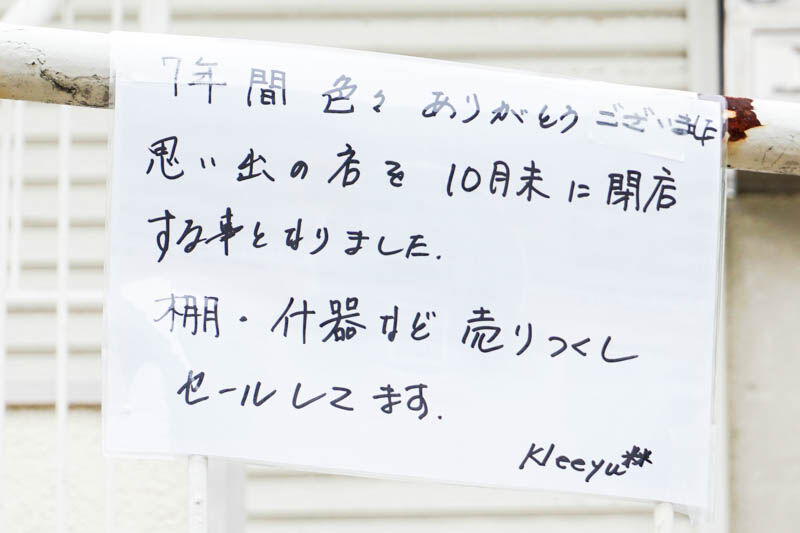 7年間 色々 ありがとうございました
思い出の店を 10月末に閉店
する事となりました.
棚・什器など 売りつくし
セールしてます.
Kleeyu**